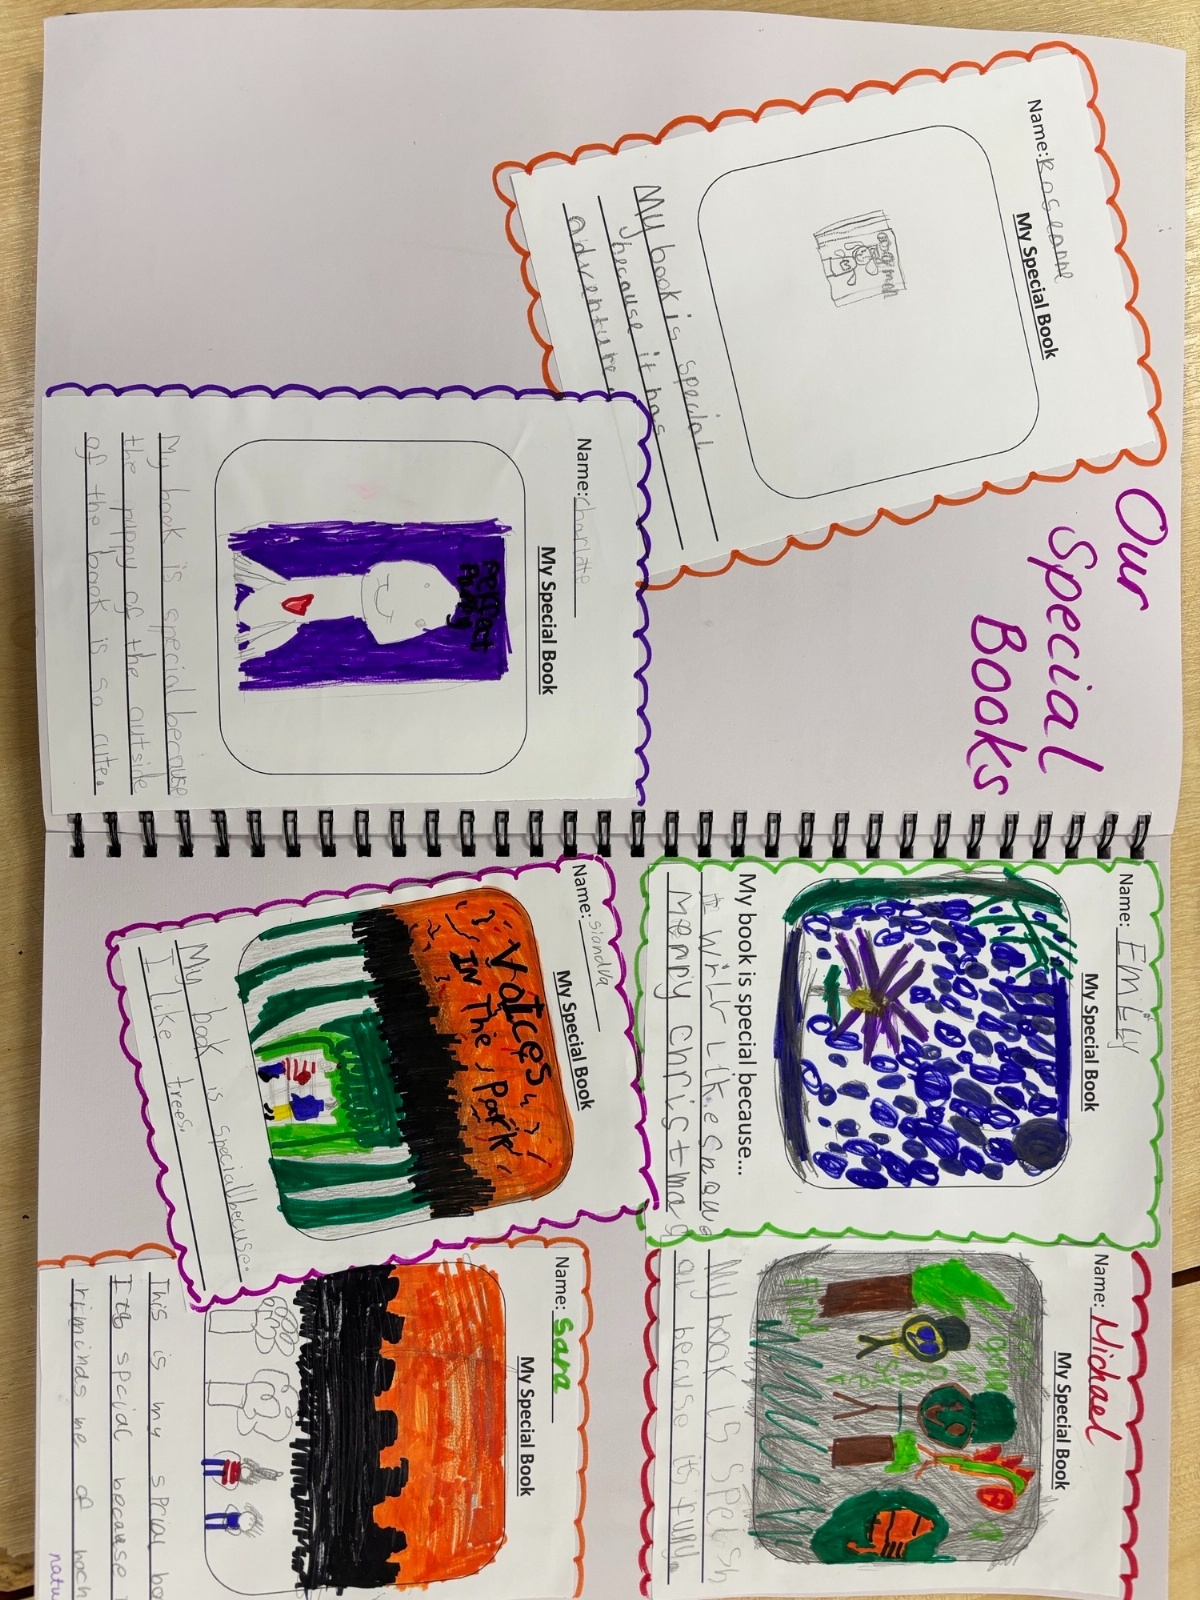 Our
Special
Books
Name: Roseanne
My Special Book
My book is special
because it has
adventure.
Name: Charlotte
My Special Book
Perfect
My book is special because
the puppy of the outside
of the book is so cute.
Name: Emily
My Special Book
My book is special because...
merry christmas
Name:
My Special Book
Voices
In The
Park
My book is speciallbecuse.
I like trees.
Name: Michael
My Special Book
Find
My book is spelsh
becuse its funy.
Name: Sara
My Special Book
This is my sprial bo
special because
riminds me of
natu